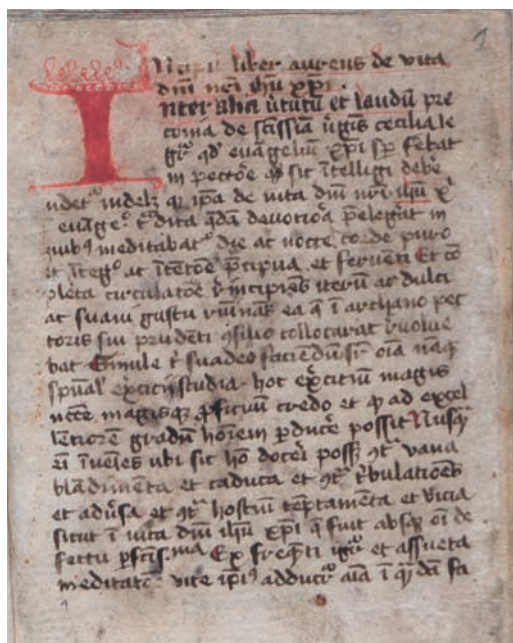 Incipit liber aureus de vita
dm̄i nr̄i ih̄u xp̄i.
Inter alia v̄tutū et laudū pre
conia de sc̄issīa v̄gīs cecilia le
git̄ qd̓ euāgeliū xp̄i sp̄ ferebat
in pectore qd̓ sic ītelligi debe̓
videt᷒ videlꝫ qꝫ ip̄a de vita dm̄i nr̄i ih̄u x̄
euāge᷒ t᷒dita q̄dā deuotiora p̄elegat in
quibꝰ meditabat᷒ die ac nocte corde puro
et īteg᷒ ac ītētōe p̄cipua et feruēti Et cō
pleta circulatōe r̓incipiēs iterū ac dulci
ac suaui gustu rūinās ea q̄ ī archano pec
toris sui prudēti ꝯsilio collocarat
bat Simile t̓ suadeo faciendū oīa nāqꝫ
spūal̓ exercitij studia hoc exercitiū magis
ncc̄e magisqꝫ ꝓficuū credo et qd̓ ad excel
lētiorē gradū hoīem ꝑducere possit Nusqꝫ
eī īueīes ubi sic hō doceri possꝫ ꝯt᷒ vana
blādimēta et caduca et ꝯt᷒ t̓bulatiōes
et adūsa et ꝯt᷒ hostiū tēptamēta et vicia
sicut ī vita dm̄i ih̄u xp̄i q̄ fuit absqꝫ oī de
fectu ꝑfcīs.ma Ex freq̄nti igit᷒ et assueta
meditatōe vite ip̄iꝰ adducit᷒ aīa ī q̄dā fa